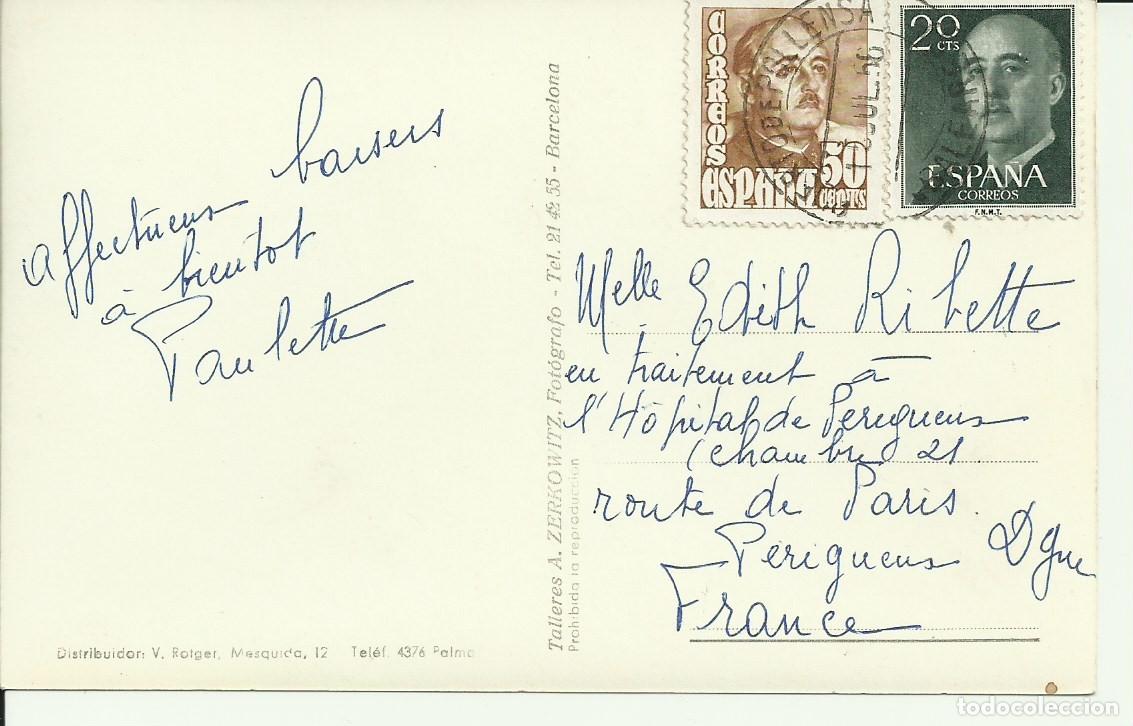 affectueux baisers
à bientot
Paulette
Distribuidor: V. Rotger, Mesquida, 12 Teléf. 4376 Palma
Talleres A. ZERKOWITZ, Fotógrafo - Tel. 21 42 55 - Barcelona
Prohibida la reproduccion
CORREOS
ESPAÑA
50
CENTS
20
CTS
ESPAÑA
CORREOS
F.N.M.T.
PUERTO DE POLLENSA
JUL 56
Melle Edith Ribette
en traitement à
l'Hôpital de Perigueux
(chambre 21
route de Paris.
Perigueux Dgne
France
todocoleccion